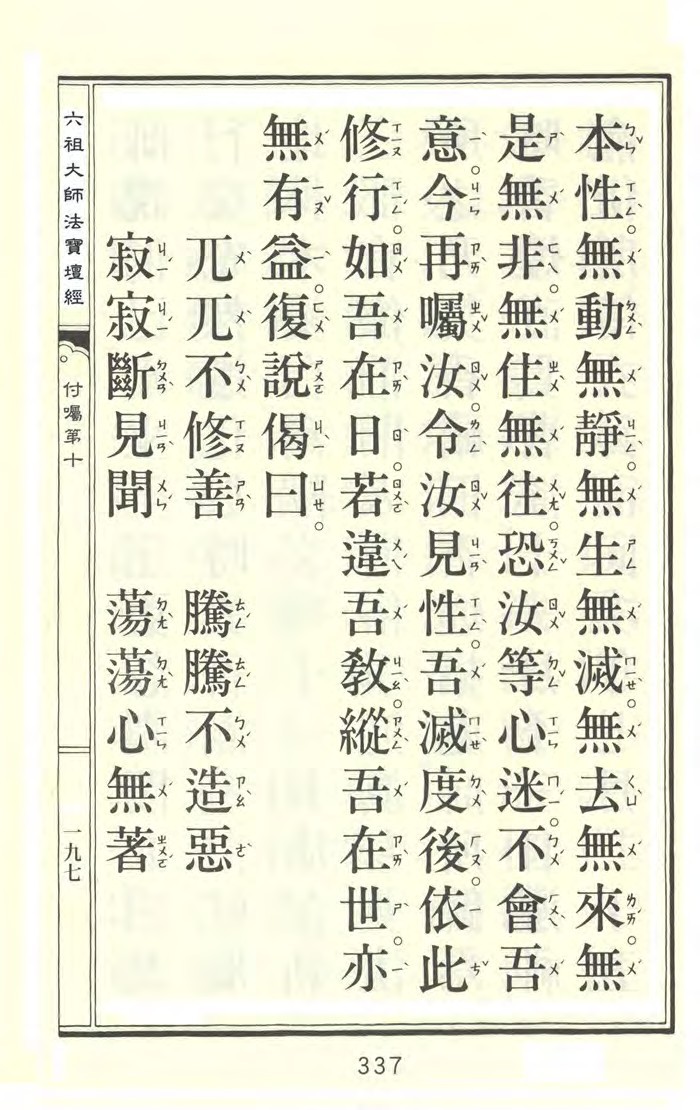 本性。無動無靜。無生無滅。無去無來。無
是無非。無住無往。恐汝等心迷。不會吾
意。今再囑汝。令汝見性。吾滅度後。依此
修行。如吾在日。若違吾教。縱吾在世。亦
無有益。復說偈曰。
兀兀不修善　騰騰不造惡
寂寂斷見聞　蕩蕩心無著
六祖大師法寶壇經
付囑第十
一九七
337